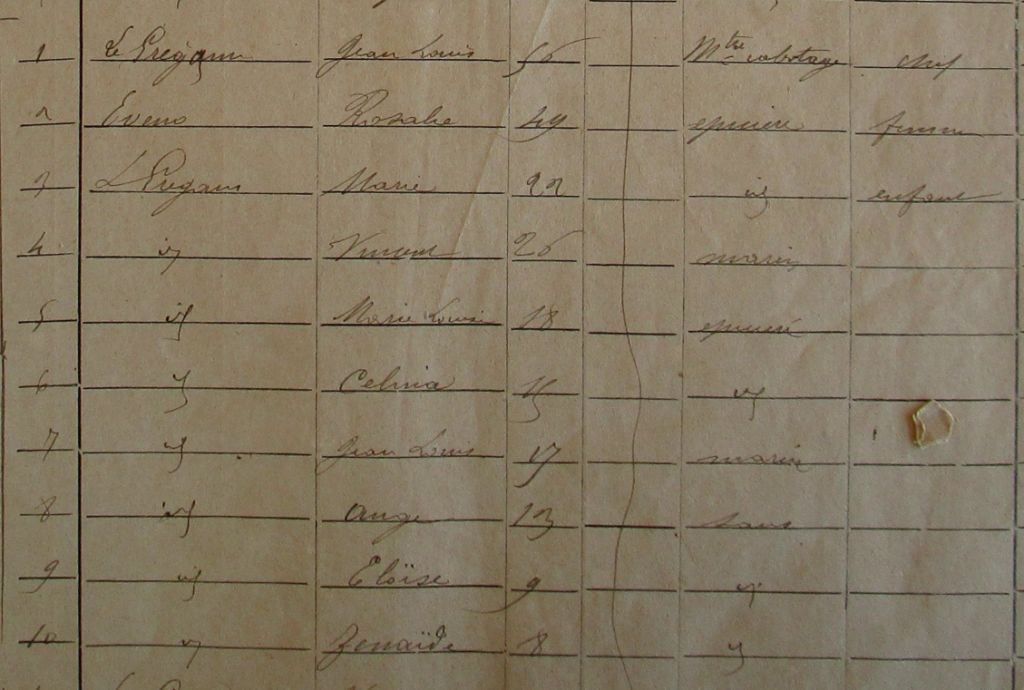 1 Le Prégam Jean Louis 56 Mtre cabotage chef
2 Eveno Rosalie 49 epiciere femme
3 L Pregam Marie 22 id enfant
4 id Vincent 26 marin
5 id Marie Louise 18 epiciere
6 id Celina 15 id
7 id Jean Louis 17 marin
8 id Ange 13 sans
9 id Eloïse 9 id
10 id Zenaïde 8 id